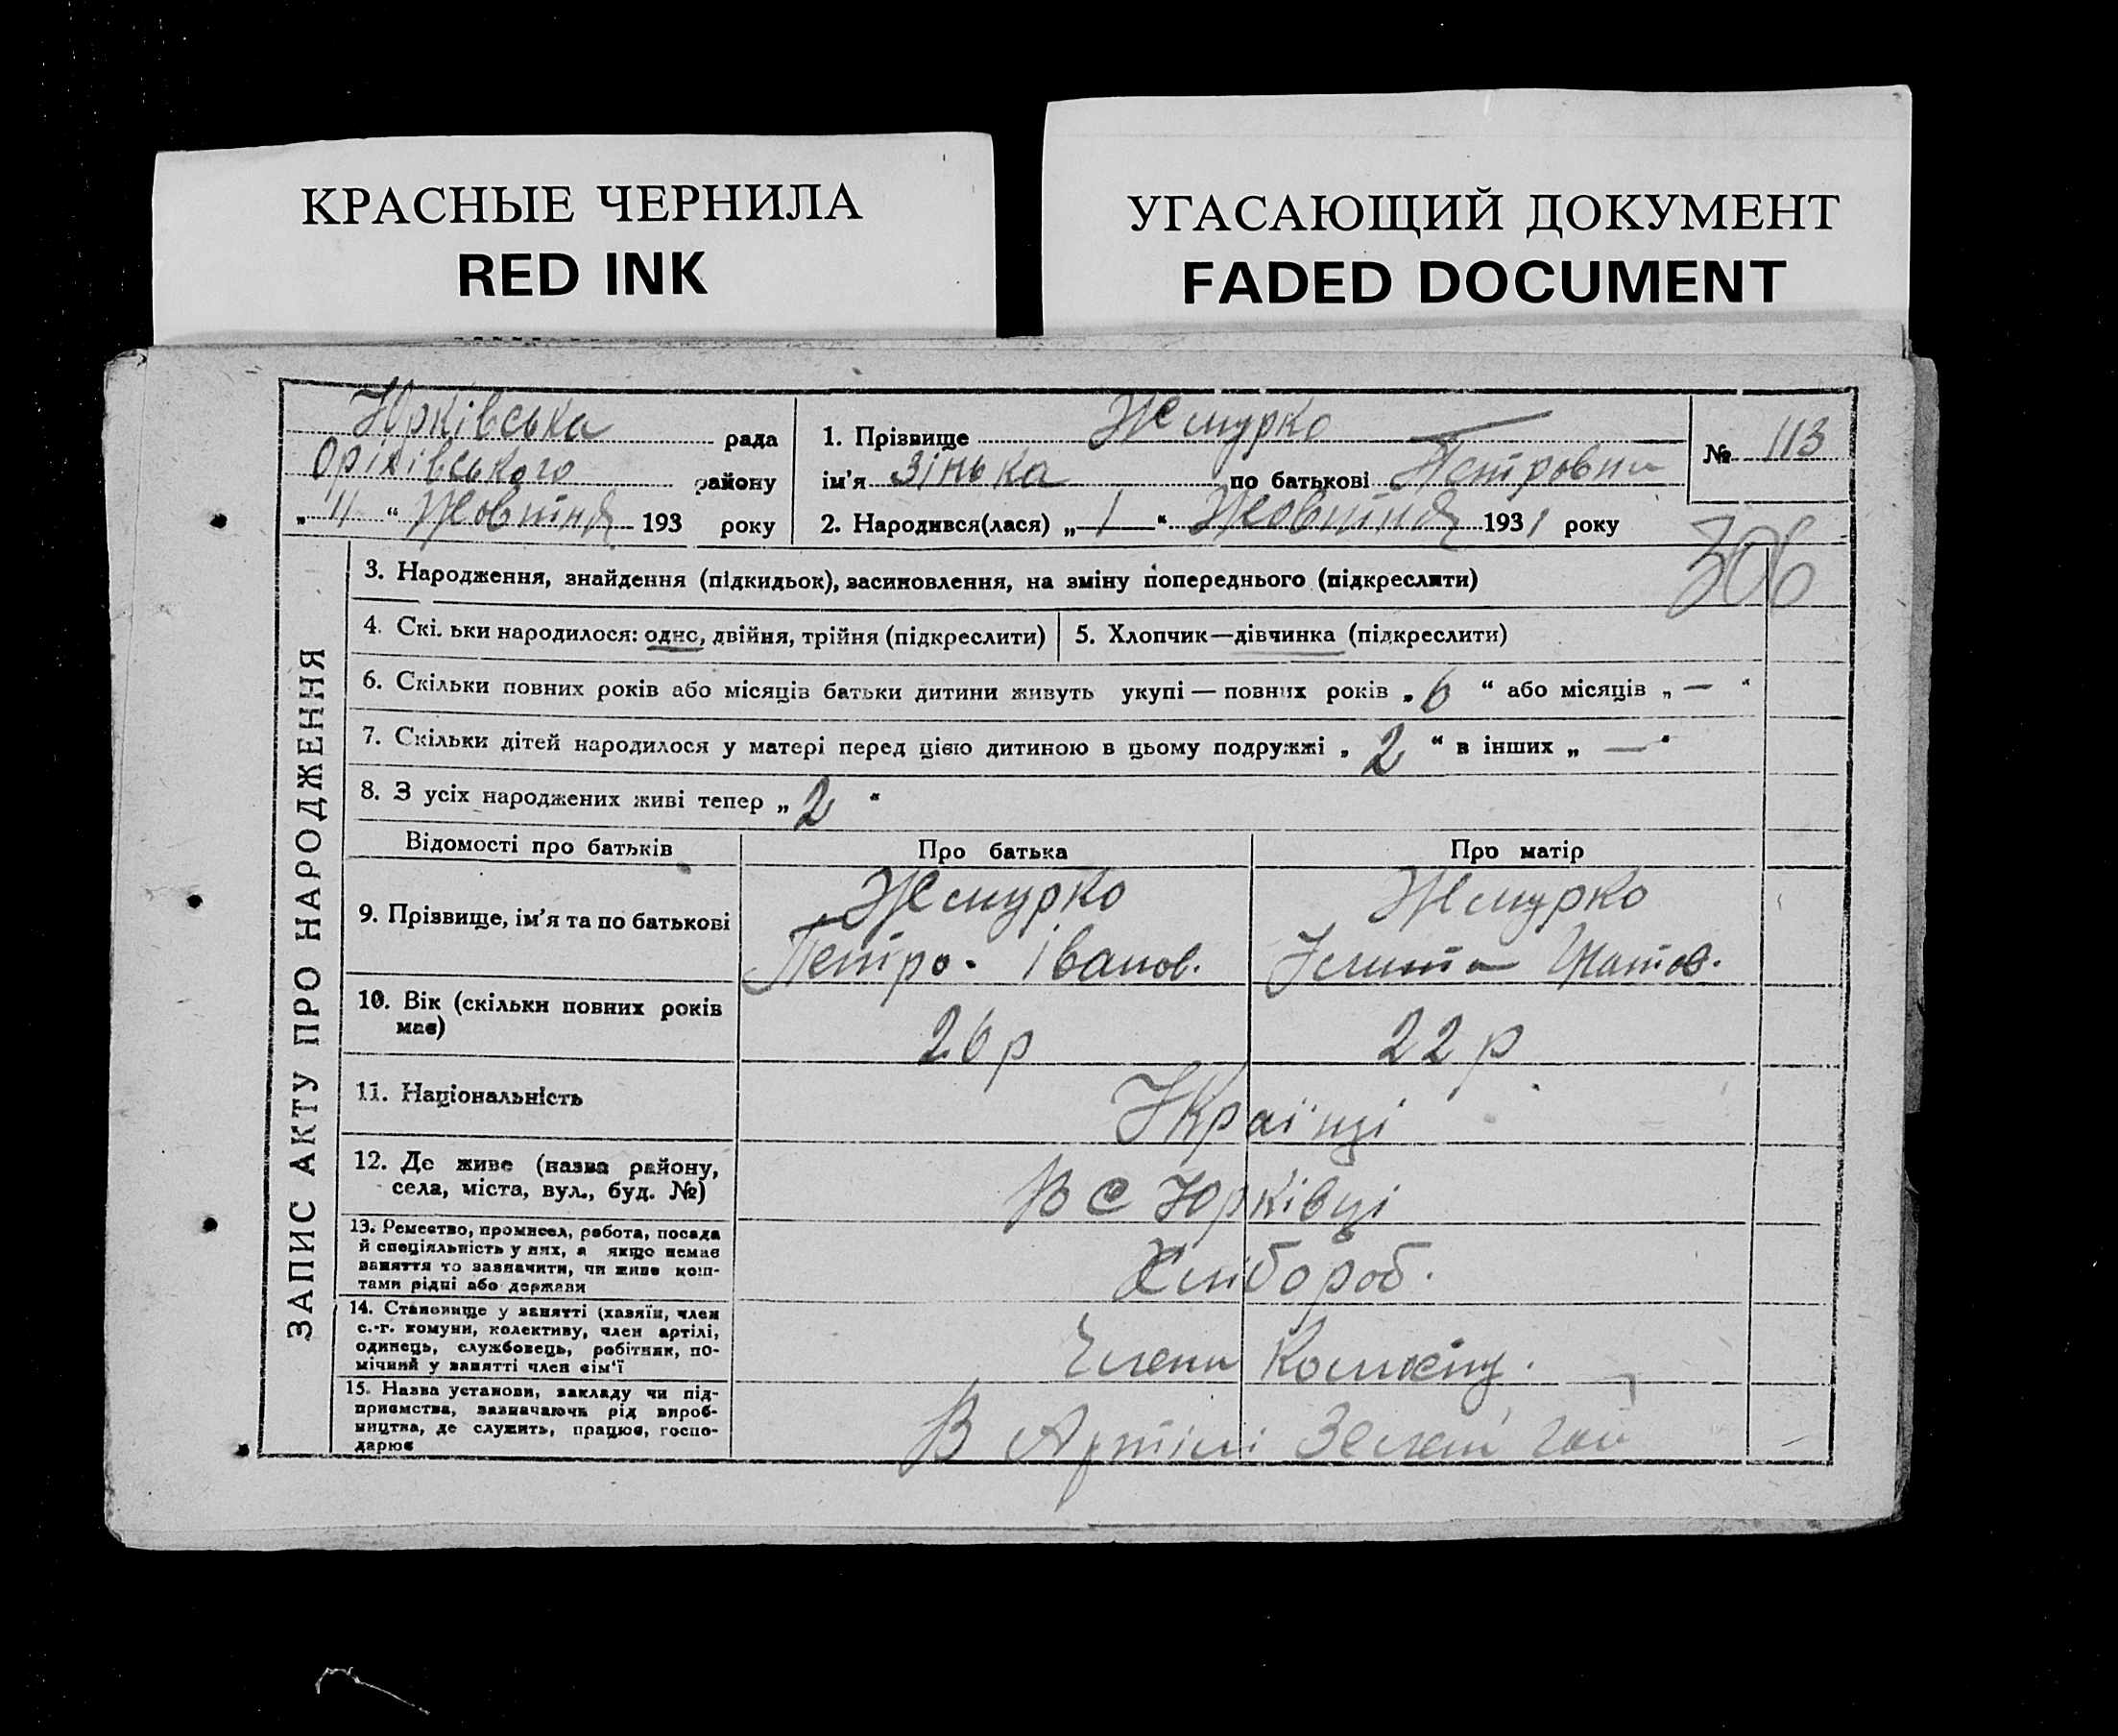 КРАСНЫЕ ЧЕРНИЛА
RED INK
УГАСАЮЩИЙ ДОКУМЕНТ
FADED DOCUMENT
Юрківська рада
Оріхівського району
„ 11 “ Жовтня 193 року
1. Прізвище Жмурко
ім'я Зінька по батькові Петровна
2. Народився(лася) „ 1 “ Жовтня 1931 року
№ 113
306
ЗАПИС АКТУ ПРО НАРОДЖЕННЯ
3. Народження, знайдення (підкидьок), засиновлення, на зміну попереднього (підкреслити)
4. Скі. ьки народилося: одно, двійня, трійня (підкреслити)
5. Хлопчик—дівчинка (підкреслити)
6. Скільки повних років або місяців батьки дитини живуть укупі — повних років „ 6 “ або місяців „ — “
7. Скільки дітей народилося у матері перед цією дитиною в цьому подружжі „ 2 “ в інших „ — “
8. З усіх народжених живі тепер „ 2 “
Відомості про батьків Про батька Про матір
9. Прізвище, ім'я та по батькові
Жмурко
Петро. Іванов.
Жмурко
10. Вік (скільки повних років має)
26 р
22 р
11. Національність
Українці
12. Де живе (назва району,
села, міста, вул., буд. №)
В с Юрківці
13. Ремество, промисел, робота, посада
й спеціяльність у них, а якщо немає
заняття то зазначити, чи живе кош-
тами рідні або держави
Хлібороб.
14. Становище у занятті (хазяїн, член
с.-г. комуни, колективу, член артілі,
одинець, службовець, робітник, по-
мічний у занятті член сім'ї
Члени
15. Назва установи, закладу чи під-
приємства, зазначаючи рід вироб-
ництва, де служить, працює, госпо-
дарює
В Артілі Зелений гай